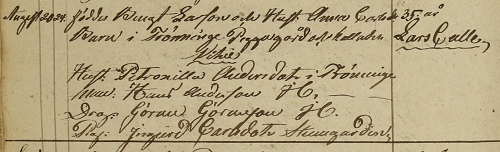 Augusti 20 24. föddes Bengt Larson och Hust. Anna Carlsd. 35 år
Barn i Trönninge Pryggagård och kallades Lars Calle,
Vittne
Hust. Petronilla Andersdot. i Trönninge
Man. Hans Anderson St, —
Dreng Göran Göranson St.
Pig. Ingierd Carlsdott. Stomgården,